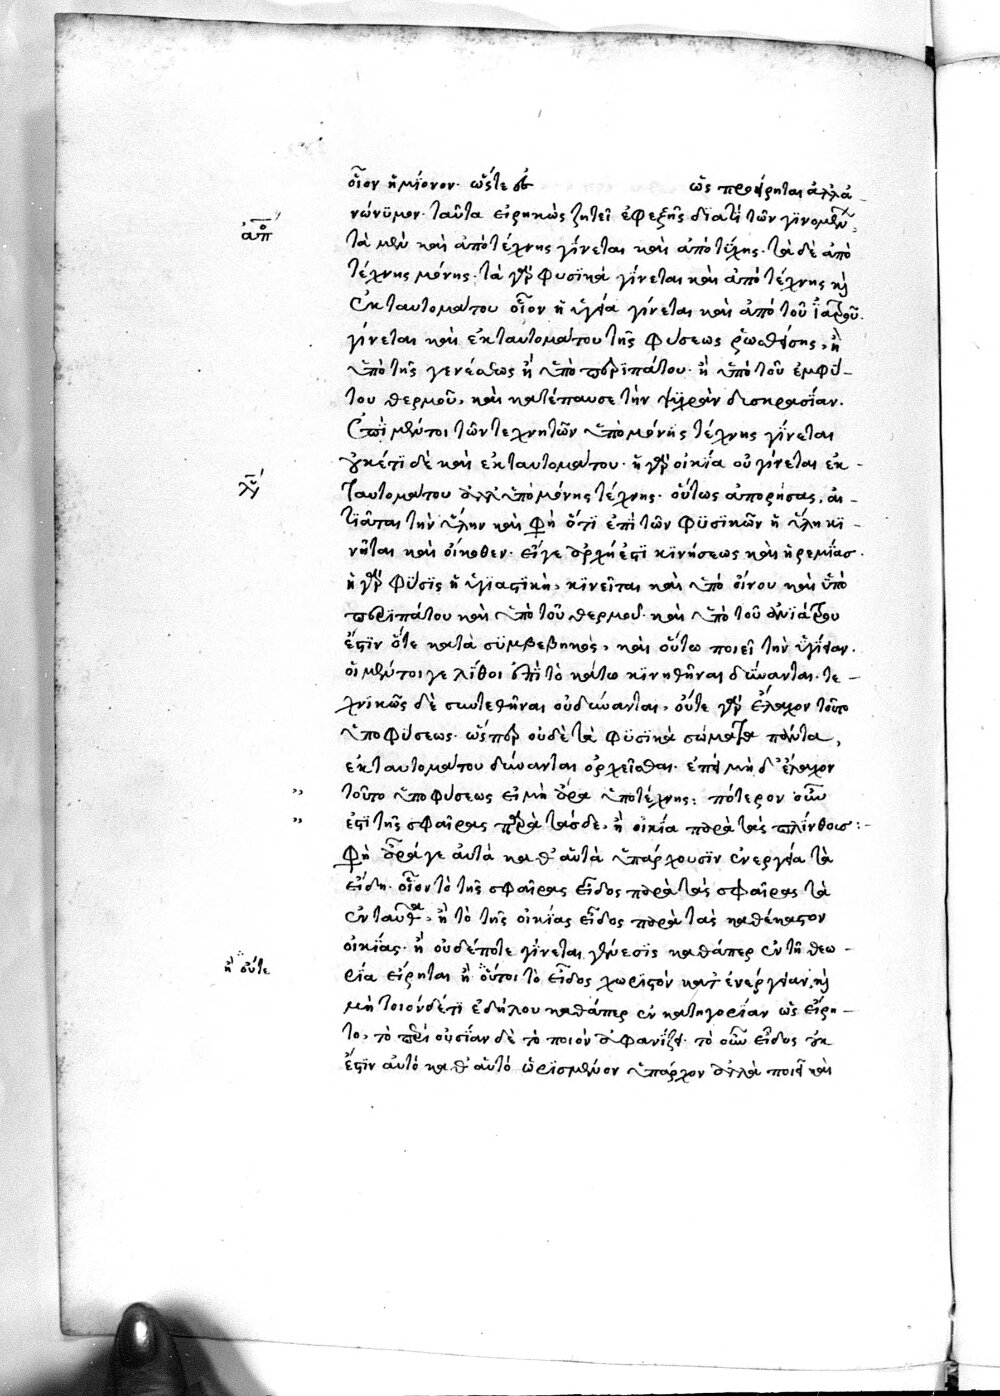 οἷον ἡμίονον· ὥστε ὡς προείρηται ἀλλὰ
ἀπορ
νώνυμον· ταῦτα εἰρηκὼς ζητεῖ ἐφεξῆς διατί τῶν γινομένων,
τὰ μὲν καὶ ἀπὸ τέχνης γίνεται καὶ ἀπὸ τύχης· τὰ δὲ ἀπὸ
τέχνης μόνης· τὰ γὰρ φυσικὰ γίνεται καὶ ἀπὸ τέχνης καὶ
ἐκ ταυτομάτου οἷον ἡ ὑγεία γίνεται καὶ ἀπὸ τοῦ ἰατροῦ·
γίνεται καὶ ἐκ ταυτομάτου τῆς φύσεως ῥωσθείσης, ἢ
ὑπὸ τῆς γενέσεως ἢ ὑπὸ περιπάτου· ἢ ὑπὸ τοῦ ἐμφύ-
του θερμοῦ, καὶ κατέπαυσε τὴν ψυχρὰν δυσκρασίαν.
Ἐπὶ μέντοι τῶν τεχνητῶν ὑπὸ μόνης τέχνης γίνεται
οὐκέτι δὲ καὶ ἐκ ταυτομάτου· ἡ γὰρ οἰκία οὐ γίνεται ἐκ
λύσ
ταυτομάτου ἀλλ' ὑπὸ μόνης τέχνης· οὕτως ἀπορήσας, αἰ-
τιᾶται τὴν ὕλην καὶ φησὶ ὅτι ἐπὶ τῶν φυσικῶν ἡ ὕλη κι-
νῆται καὶ οἴκοθεν· εἴγε ἀρχή ἐστι κινήσεως καὶ ἠρεμίας·
ἡ γὰρ φύσις ἡ ὑγιαστικὴ, κινεῖται καὶ ὑπὸ οἴνου καὶ ὑπὸ
περιπάτου καὶ ὑπὸ τοῦ θερμοῦ· καὶ ὑπὸ τοῦ ἀνιάτρου
ἔστιν ὅτε κατὰ συμβεβηκὸς, καὶ οὕτω ποιεῖ τὴν ὑγίειαν.
οἱ μέντοιγε λίθοι ἐπὶ τὸ κάτω κινηθῆναι δύνανται· τε-
χνικῶς δὲ συντεθῆναι οὐ δύνανται, οὔτε γὰρ ἔλαχον τοῦτο
ὑπὸ φύσεως· ὥσπερ οὐδὲ τὰ φυσικὰ σώματα πάντα,
ἐκ ταυτομάτου δύνανται ὀρχεῖσθαι· ἐπεὶ μὴ δ' ἔλαχον
τοῦτο ὑπὸ φύσεως εἰ μὴ ἄρα ὑπὸ τέχνης: πότερον οὖν
ἐστι τῆς σφαῖρας παρὰ τάσδε, ἢ οἰκία παρὰ τὰς πλίνθους:-
Φησὶ ἆρά γε αὐτὰ καθ' αὑτὰ ὑπάρχουσιν ἐνεργείᾳ τὰ
εἴδη· οἷον τὸ τῆς σφαῖρας εἶδος παρὰ τὰς σφαῖρας τὰ
ἐνταῦθα, ἢ τὸ τῆς οἰκίας εἶδος παρὰ τὰς καθέκαστον
οἰκίας· ἢ οὐδέποτε γίνεται γένεσις καθάπερ ἐν τῇ θεω-
ἢ οὔτε
ρίᾳ εἴρηται ἢ οὕτοι τὸ εἶδος χωριστὸν κατ' ἐνέργειαν, καὶ
μὴ τοιόνδέ τι ἐδήλου καθάπερ ἐν κατηγορίαν ὡς εἴρη-
το, τὸ περὶ οὐσίαν δὲ τὸ ποιὸν ἀφανίζει· τὸ οὖν εἶδος οὐκ
ἔστιν αὐτὸ καθ' αὑτὸ ὡρισμένον ὑπάρχον ἀλλὰ ποιεῖ καὶ